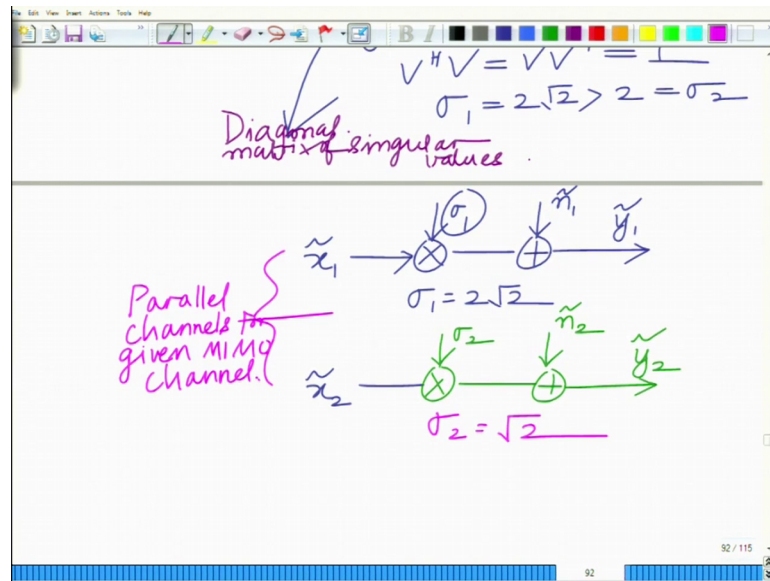 File Edit View Insert Actions Tools Help
B I
V^H V = V V^H = I
σ₁ = 2√2 > 2 = σ₂
Diagonal
matrix of singular
values.
x̃₁ × σ₁ + ñ₁ ỹ₁
σ₁ = 2√2
Parallel
channels for
given MIMO
channel.
x̃₂ × σ₂ + ñ₂ ỹ₂
σ₂ = √2
92 / 115
92